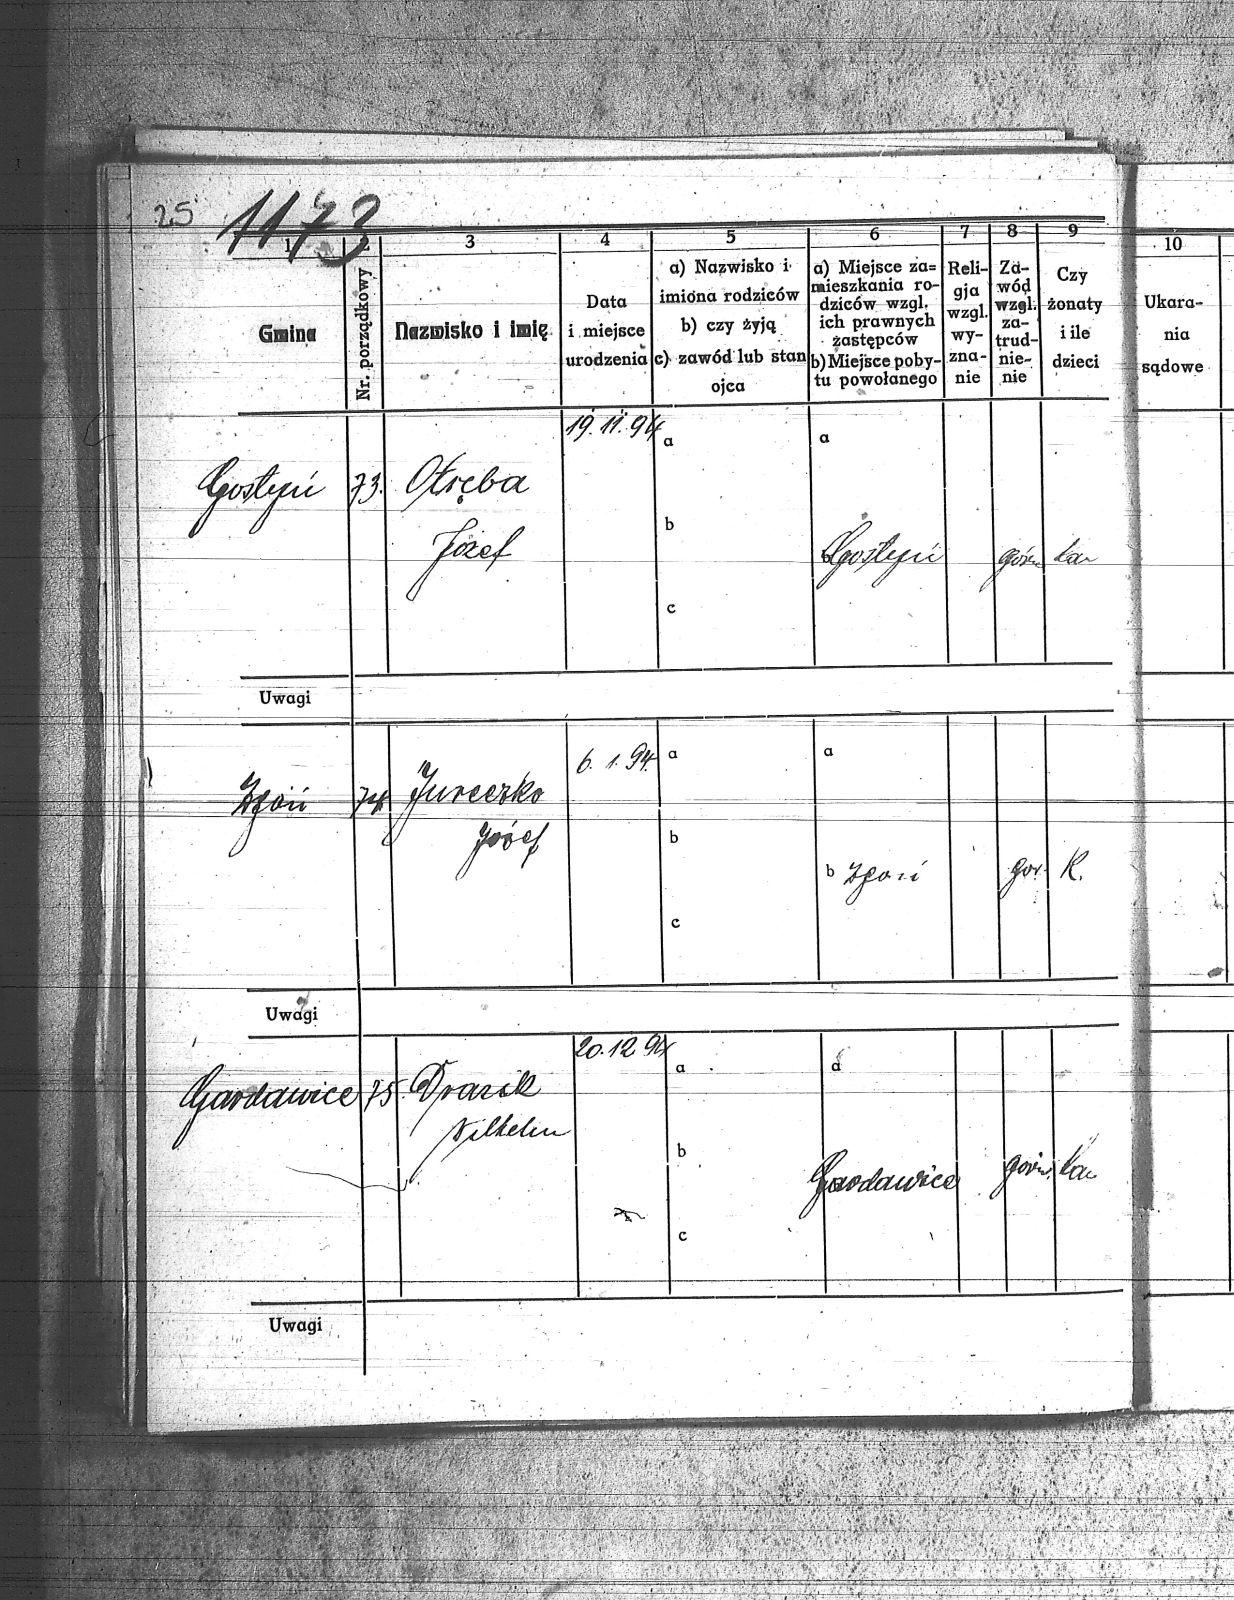 25
1173
1 2 3 4 5 6 7 8 9 10
Gmina
Nr. porządkowy
Nazwisko i imię
Data
i miejsce
urodzenia
a) Nazwisko i
imiona rodziców
b) czy żyją
c) zawód lub stan
ojca
a) Miejsce za=
mieszkania ro-
dziców wzgl.
ich prawnych
zastępców
b) Miejsce poby-
tu powołanego
Reli-
gja
wzgl.
wy-
zna-
nie
Za-
wód
wzgl.
za-
trud-
nie-
nie
Czy
żonaty
i ile
dzieci
Ukara-
nia
sądowe
19.11.94
a a
Gostyń 73. Otręba
b
Józef Gostyń górn
c
Uwagi
6.1.94. a a
Zgoń 74 Jureczko
Józef b
b Zgoń gor. K.
c
Uwagi
20.12 94
a a
Gardawice 75. Drazik
Wilhelm
b
Gardawice górn.
c
Uwagi